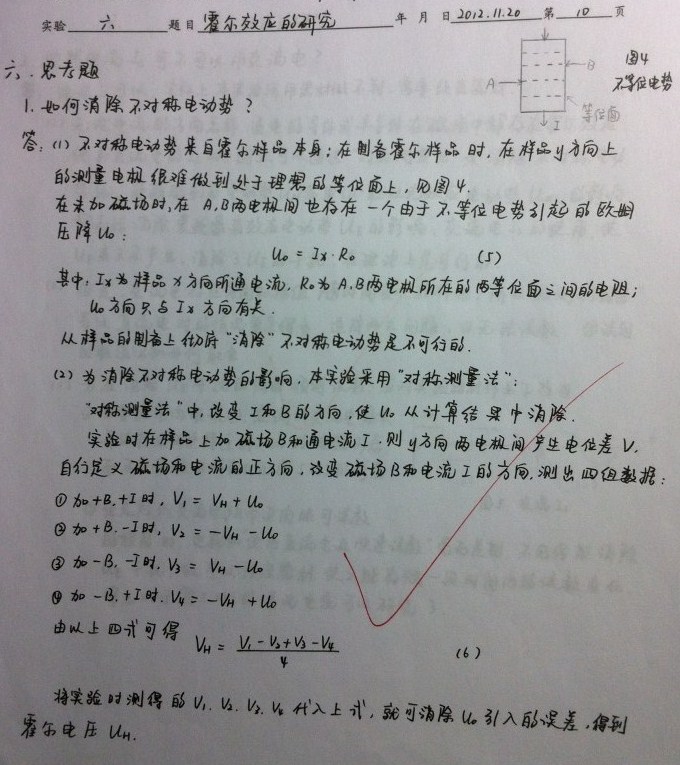 实验 六 题目 霍尔效应的研究 年 月 日 2012.11.20 第 10 页
六.思考题
A
B
等位面
I
图4
不等位电势
1.如何消除不对称电动势？
答:(1) 不对称电动势来自霍尔样品本身;在制备霍尔样品时,在样品y方向上
的测量电极很难做到处于理想的等位面上,见图4.
在未加磁场时,在A.B两电极间也存在一个由于不等位电势引起的欧姆
压降U₀:
U₀ = Ix·R₀ (5)
其中:Ix为样品x方向所通电流, R₀为A.B两电极所在的两等位面之间的电阻;
U₀方向只与Ix方向有关.
从样品的制备上彻底"消除"不对称电动势是不可行的.
(2) 为消除不对称电动势的影响,本实验采用"对称测量法":
"对称测量法"中,改变I和B的方向,使U₀从计算结果中消除.
实验时在样品上加磁场B和通电流I,则y方向两电极间产生电位差V.
自行定义磁场和电流的正方向,改变磁场B和电流I的方向,测出四组数据:
① 加+B.+I时, V₁ = V_H + U₀
② 加+B.-I时, V₂ = -V_H - U₀
③ 加-B.-I时, V₃ = V_H - U₀
④ 加-B.+I时. V₄ = -V_H + U₀
由以上四式可得 V_H = (V₁-V₂+V₃-V₄)/4 (6)
将实验时测得的V₁.V₂.V₃.V₄代入上式,就可消除U₀引入的误差,得到
霍尔电压U_H.